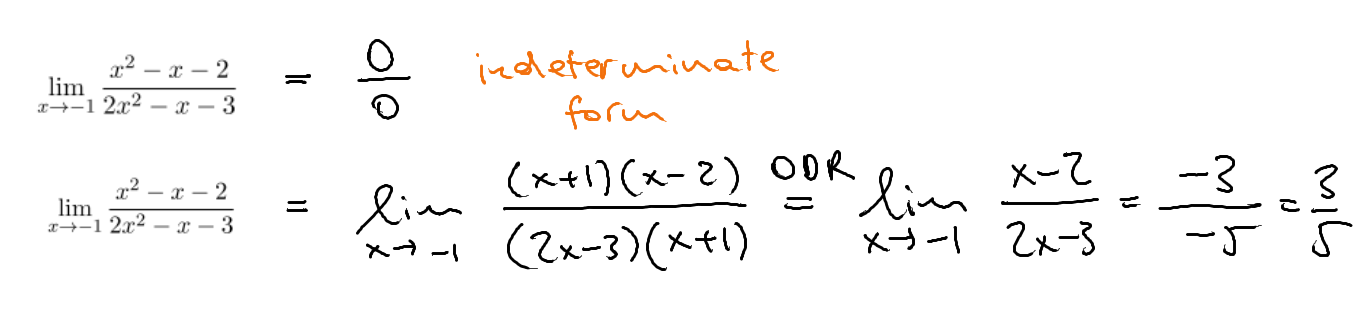 lim_{x→−1} (x² − x − 2)/(2x² − x − 3) = 0/0 indeterminate form
lim_{x→−1} (x² − x − 2)/(2x² − x − 3) = lim_{x→−1} ((x+1)(x−2))/((2x−3)(x+1)) =^{ODR} lim_{x→−1} (x−2)/(2x−3) = −3/−5 = 3/5